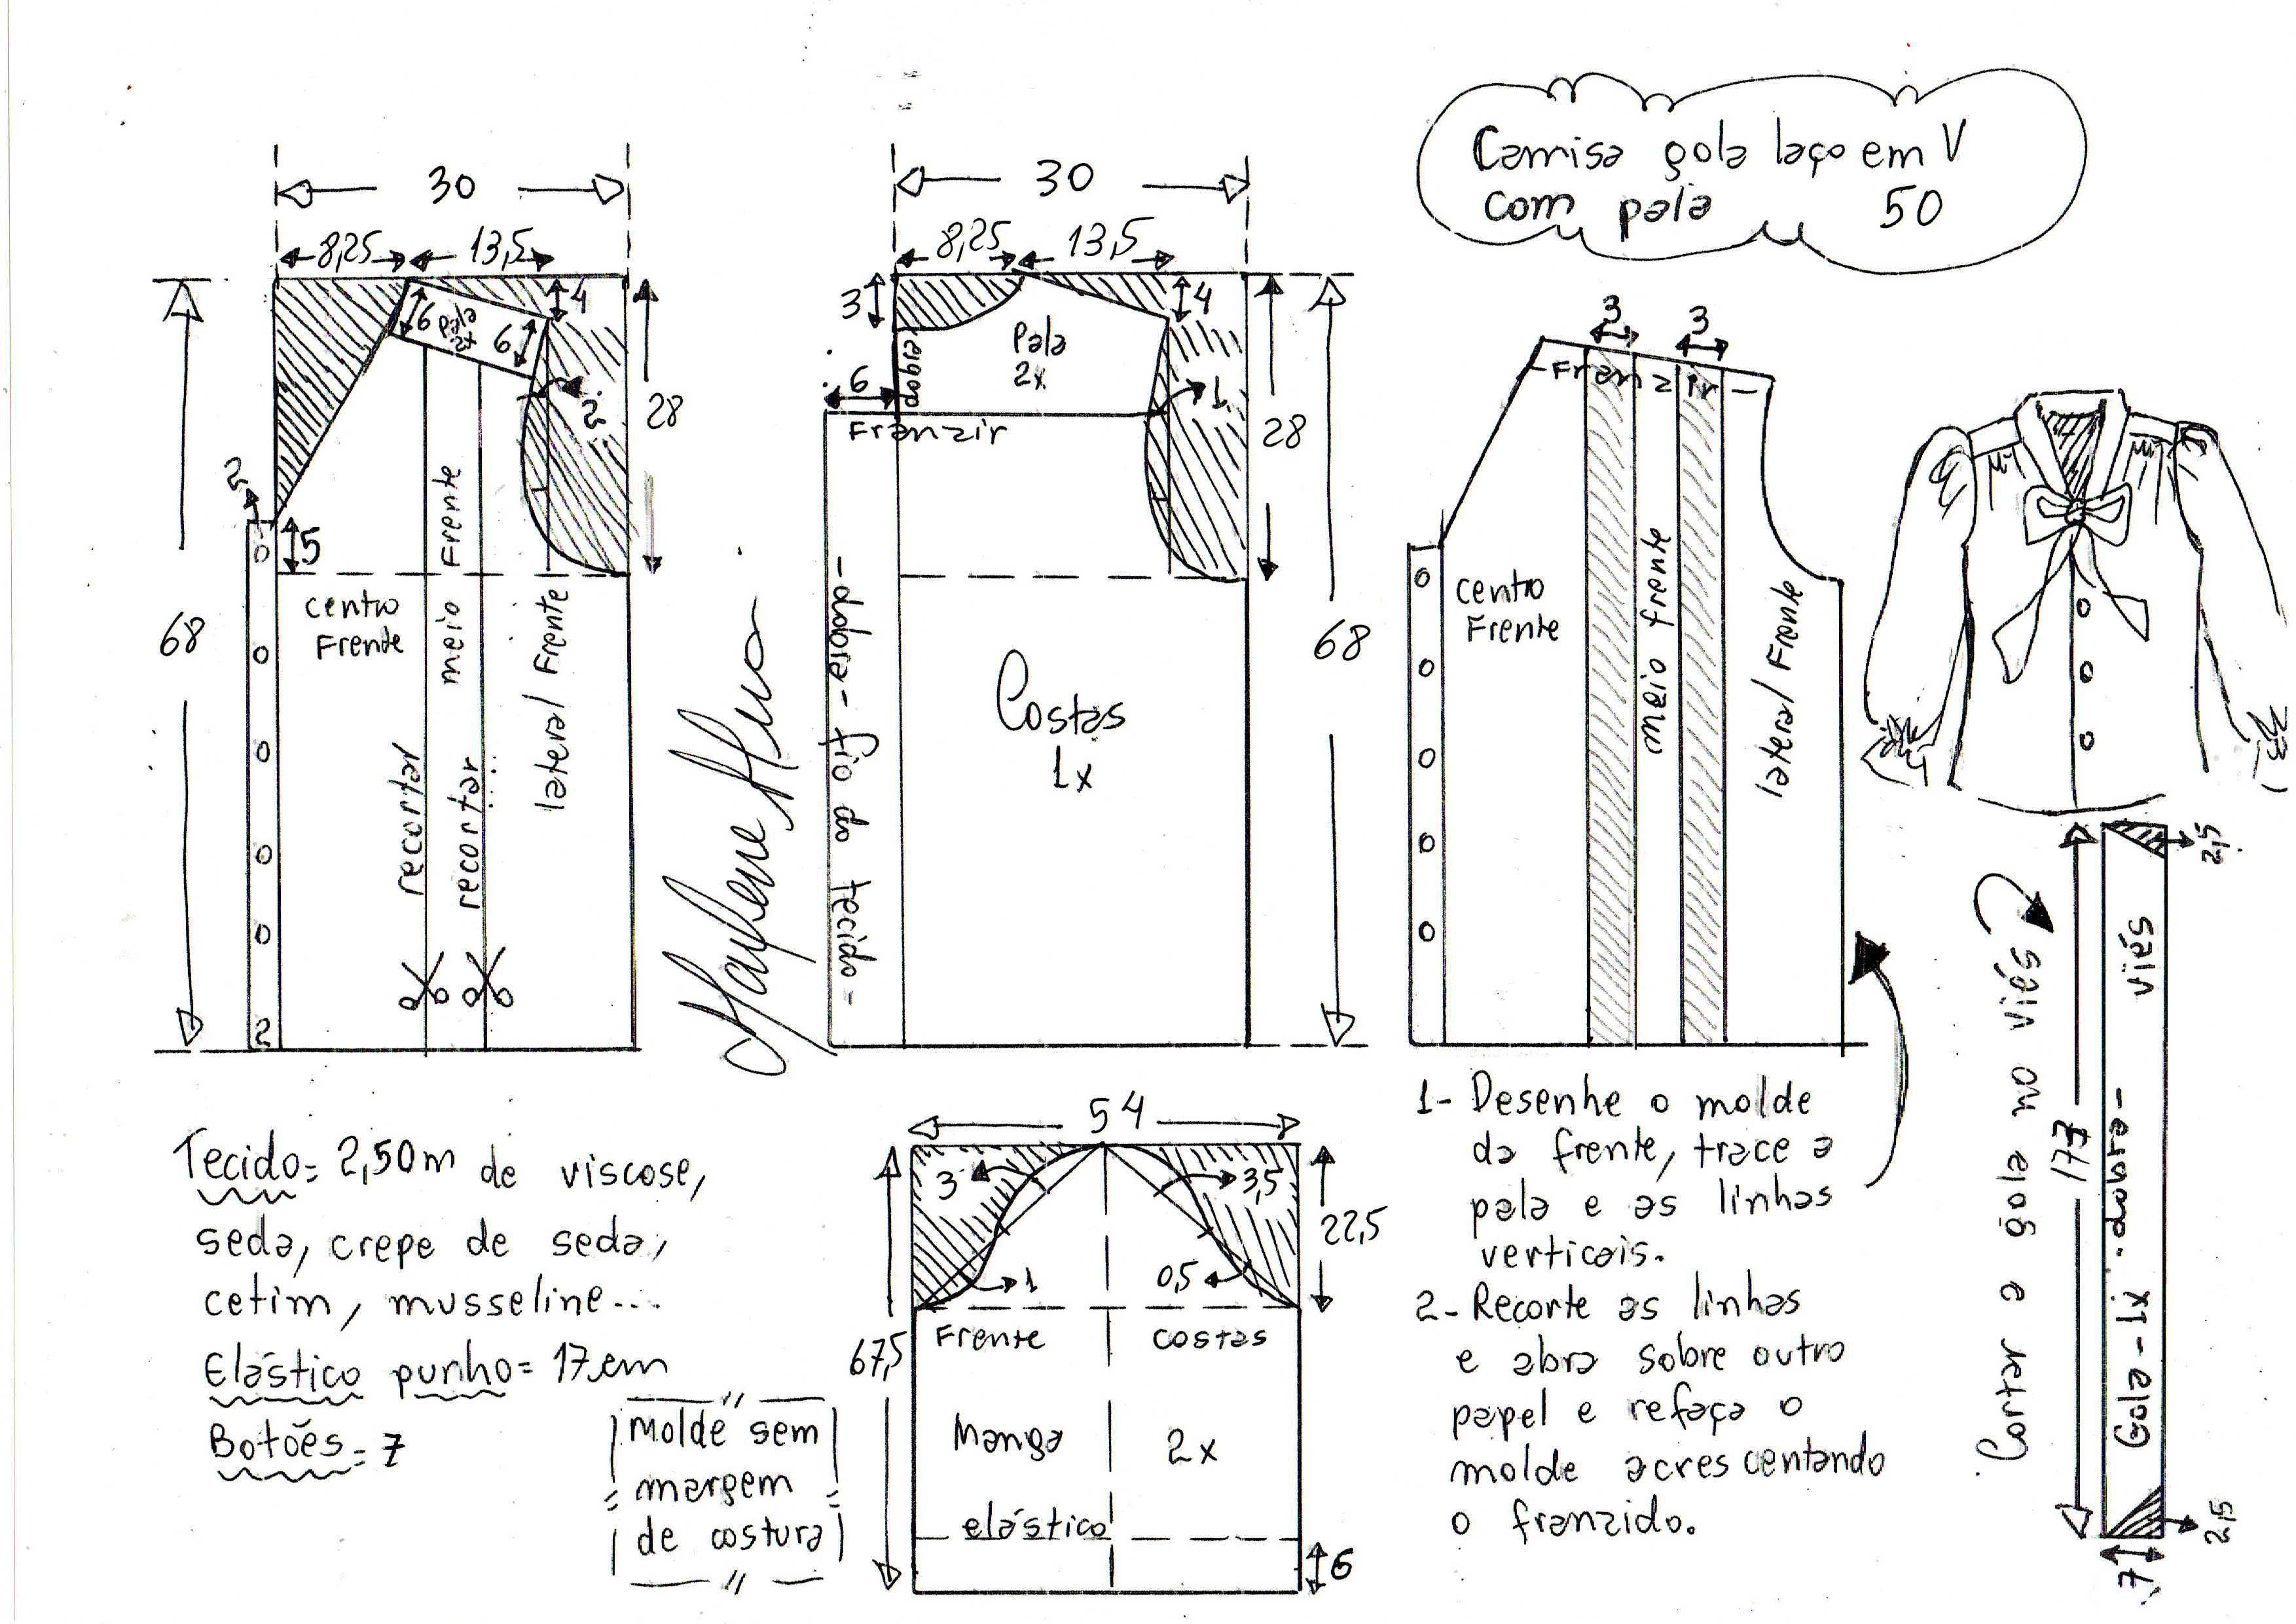 Camisa gola laço em V
com pala 50
30
8,25 13,5
6
pala
2x
6
4
2
28
2
5
68
centro
Frente
meio Frente
lateral Frente
recortar
recortar
2
30
8,25 13,5
3
4
dobra
Pala
2x
6
1
Franzir
28
68
-dobra- fio do tecido-
Costas
1x
Marlene Mukai
3 3
-Franzir-
centro
Frente
meio frente
lateral Frente
Tecido= 2,50m de viscose,
seda, crepe de seda,
cetim, musseline...
Elástico punho= 17cm
Botões= 7
molde sem
margem
de costura
54
3
3,5
22,5
1
0,5
Frente
costas
67,5
Manga 2x
elástico
6
1- Desenhe o molde
da frente, trace a
pala e as linhas
verticais.
2- Recorte as linhas
e abra sobre outro
papel e refaça o
molde acrescentando
o franzido.
Cortar a gola no viés
173
2,5
Gola-1x. dobra-
viés
2,5
7